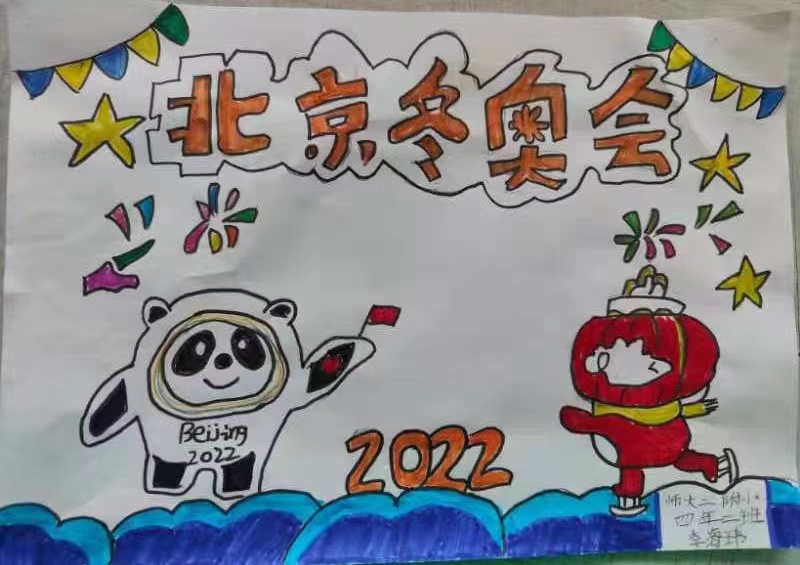 北京冬奥会
Beijing
2022
2022
师大二附小
四年二班
李海玮